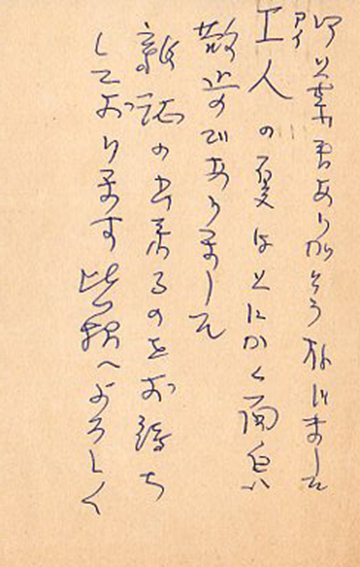 葉書ありがとう存じました
工人の夏はとにかく面白い
でありました
雑誌の出来るのをお待ち
しております皆様へよろしく